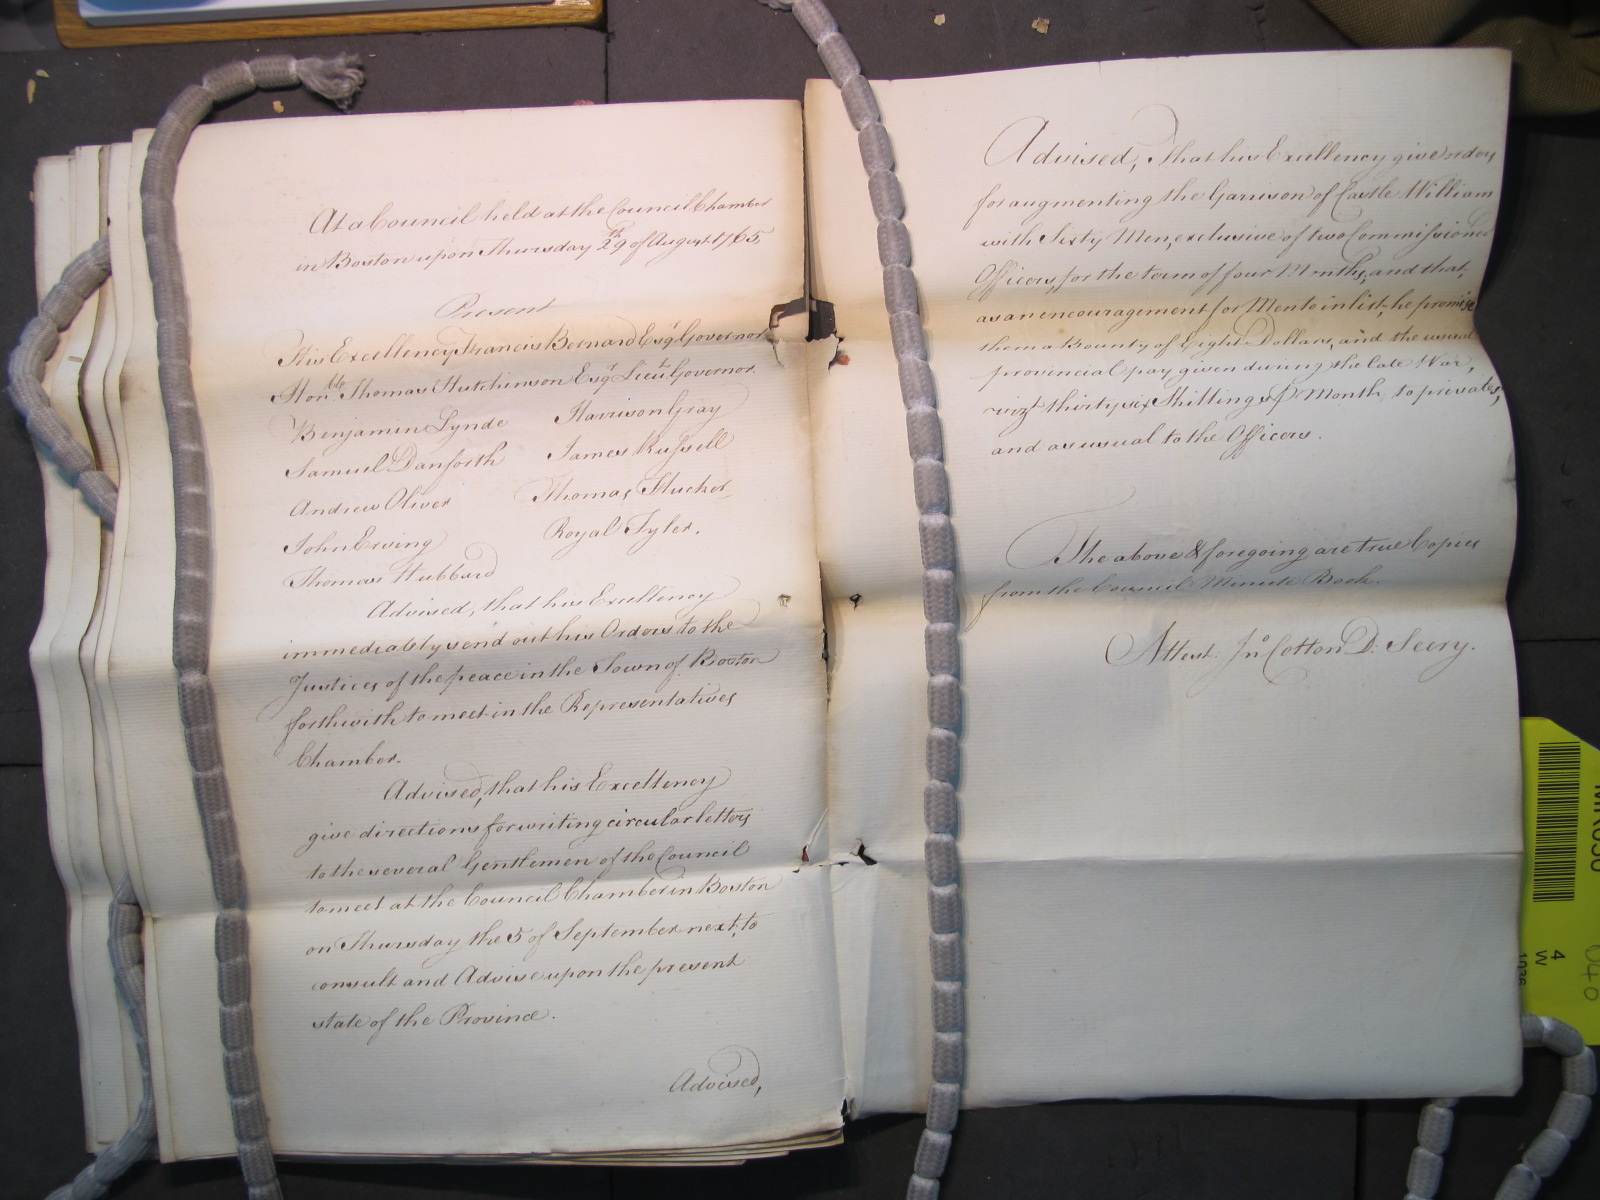 At a Council held at the Council Chamber
in Boston upon Thursday 29th of August 1765,
Present
His Excellency Francis Bernard Esqr Governor
Honble Thomas Hutchinson Esqr Lieut Governor.
Benjamin Lynde Harrison Gray
Samuel Danforth James Russell
Andrew Oliver Thomas Flucker
John Erving Royal Tyler.
Thomas Hubbard
Advised, that his Excellency
immediately send out his Orders to the
Justices of the peace in the Town of Boston
forthwith to meet in the Representatives
Chamber.
Advised, that his Excellency
give directions for writing circular letters
to the several Gentlemen of the Council
to meet at the Council Chamber in Boston
on Thursday the 5 of September next, to
consult and Advise upon the present
state of the Province.
Advised,
Advised, That his Excellency give orders
for augmenting the Garrison of Castle William
with Sixty Men, exclusive of two Commissioned
Officers, for the term of four Months, and that,
as an encouragement for Men to inlist, he promise
them a Bounty of Eight Dollars, and the usual
provincial pay given during the late War,
vizt thirty six Shillings p Month, to privates,
and as usual to the Officers.
The above & foregoing are true Copies
from the Council Minute Book.
Attest. Jno Cotton D. Secry.
4
W
1036
040